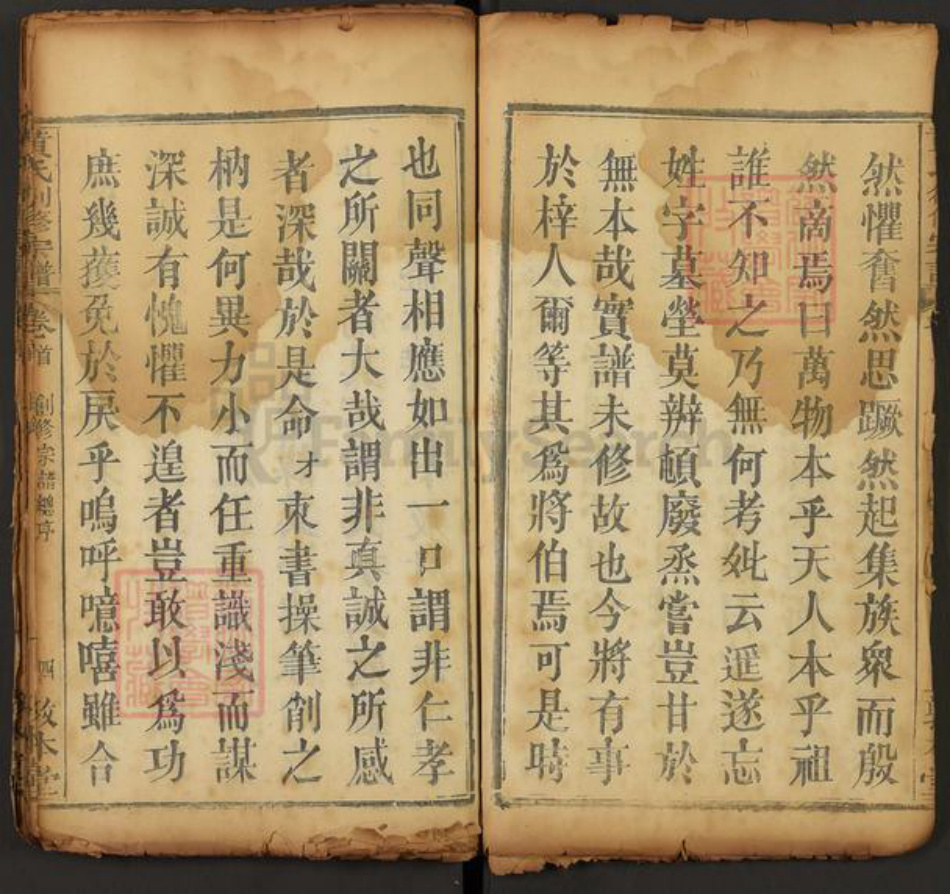 然懼奮然思蹶然起集族衆而殷
然啇焉曰萬物本乎天人本乎祖
誰不知之乃無何考妣云遥遂忘
姓字墓塋莫辨頓廢烝嘗豈甘於
無本哉實譜未修故也今將有事
於梓人爾等其爲將伯焉可是時
也同聲相應如出一口謂非仁孝
之所關者大哉謂非真誠之所感
者深哉於是命才束書操筆創之
枘是何異力小而任重識淺而謀
深誠有愧懼不遑者豈敢以爲功
庶幾獲免於戾乎嗚呼噫嘻雖合
黄氏創修宗譜 卷首 創修宗譜總序 四 敦本堂
FamilySearch